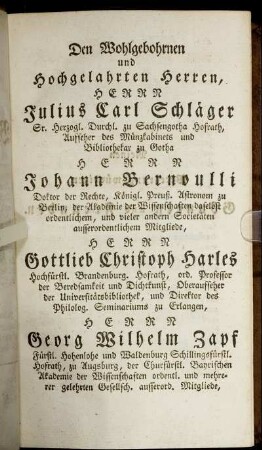 Den Wohlgebohrnen
und
Hochgelahrten Herren,
HERRN
Julius Carl Schläger
Sr. Herzogl. Durchl. zu Sachsengotha Hofrath,
Aufseher des Münzkabinets und
Bibliothekar zu Gotha
HERRN
Johann Bernoulli
Doktor der Rechte, Königl. Preuß. Astronom zu
Berlin, der Akademie der Wissenschaften daselbst
ordentlichem, und vieler andern Societäten
ausserordentlichem Mitgliede,
HERRN
Gottlieb Christoph Harles
Hochfürstl. Brandenburg. Hofrath, ord. Professor
der Beredsamkeit und Dichtkunst, Oberaufseher
der Universitätsbibliothek, und Direktor des
Philolog. Seminariums zu Erlangen,
HERRN
Georg Wilhelm Zapf
Fürstl. Hohenlohe und Waldenburg Schillingsfürstl.
Hofrath, zu Augsburg, der Churfürstl. Bayrischen
Akademie der Wissenschaften ordentl. und mehre-
rer gelehrten Gesellsch. ausserord. Mitgliede,